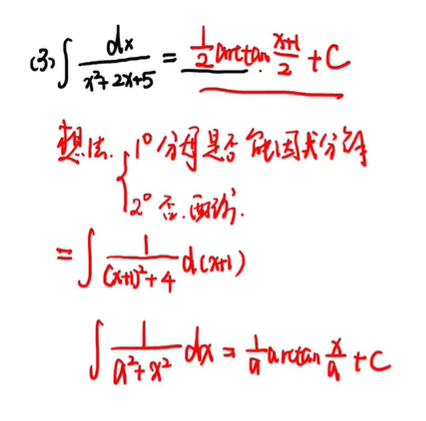 (3) ∫ dx / (x²+2x+5) = 1/2 arctan (x+1)/2 + C
想法. { 1° 分母是否能因式分解
2° 否. 配方.
= ∫ 1 / ((x+1)²+4) d(x+1)
∫ 1 / (a²+x²) dx = 1/a arctan x/a + C